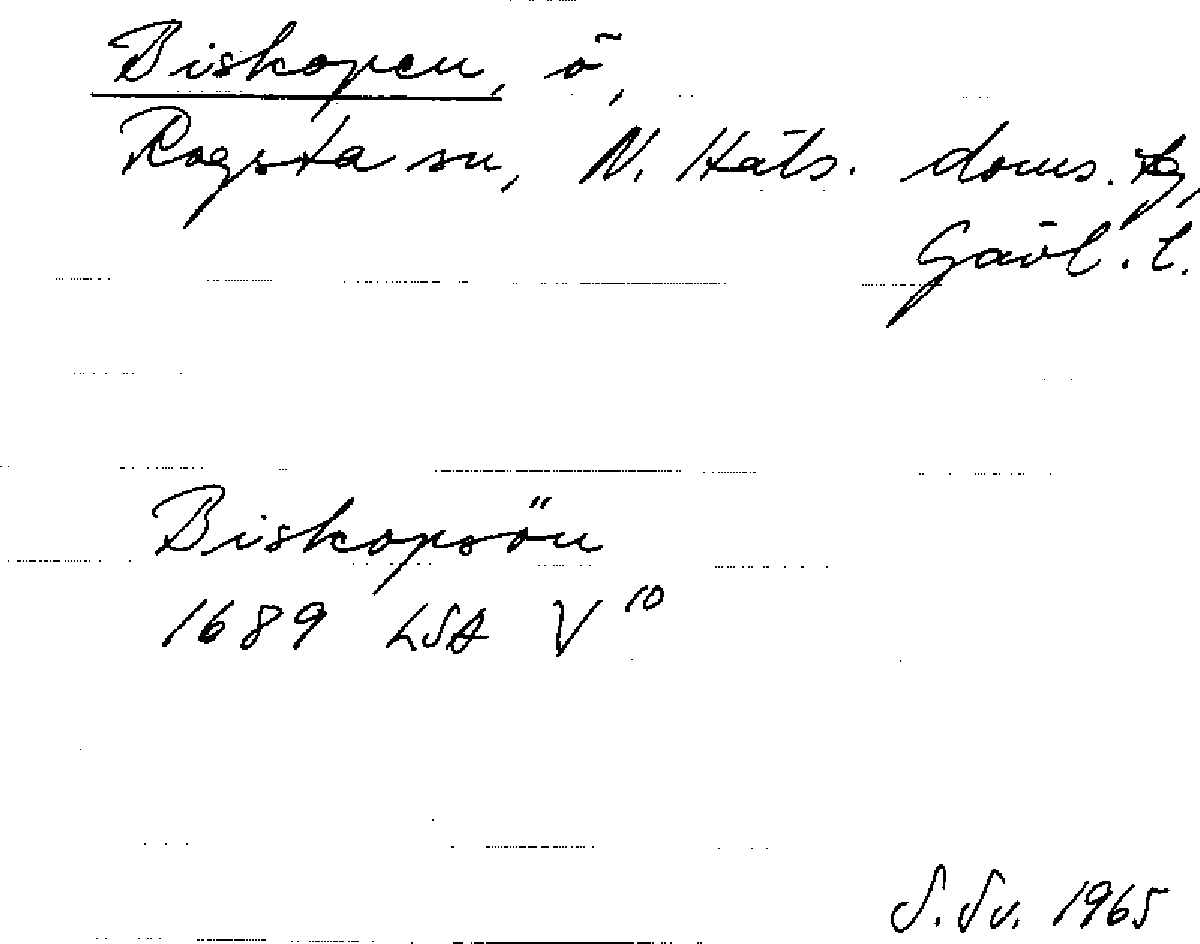 Biskopen, ö,
Rogsta sn, N. Häls. doms. tg,
Gävl. l.
Biskopsön
1689 LSA V 10
S. Sv. 1965